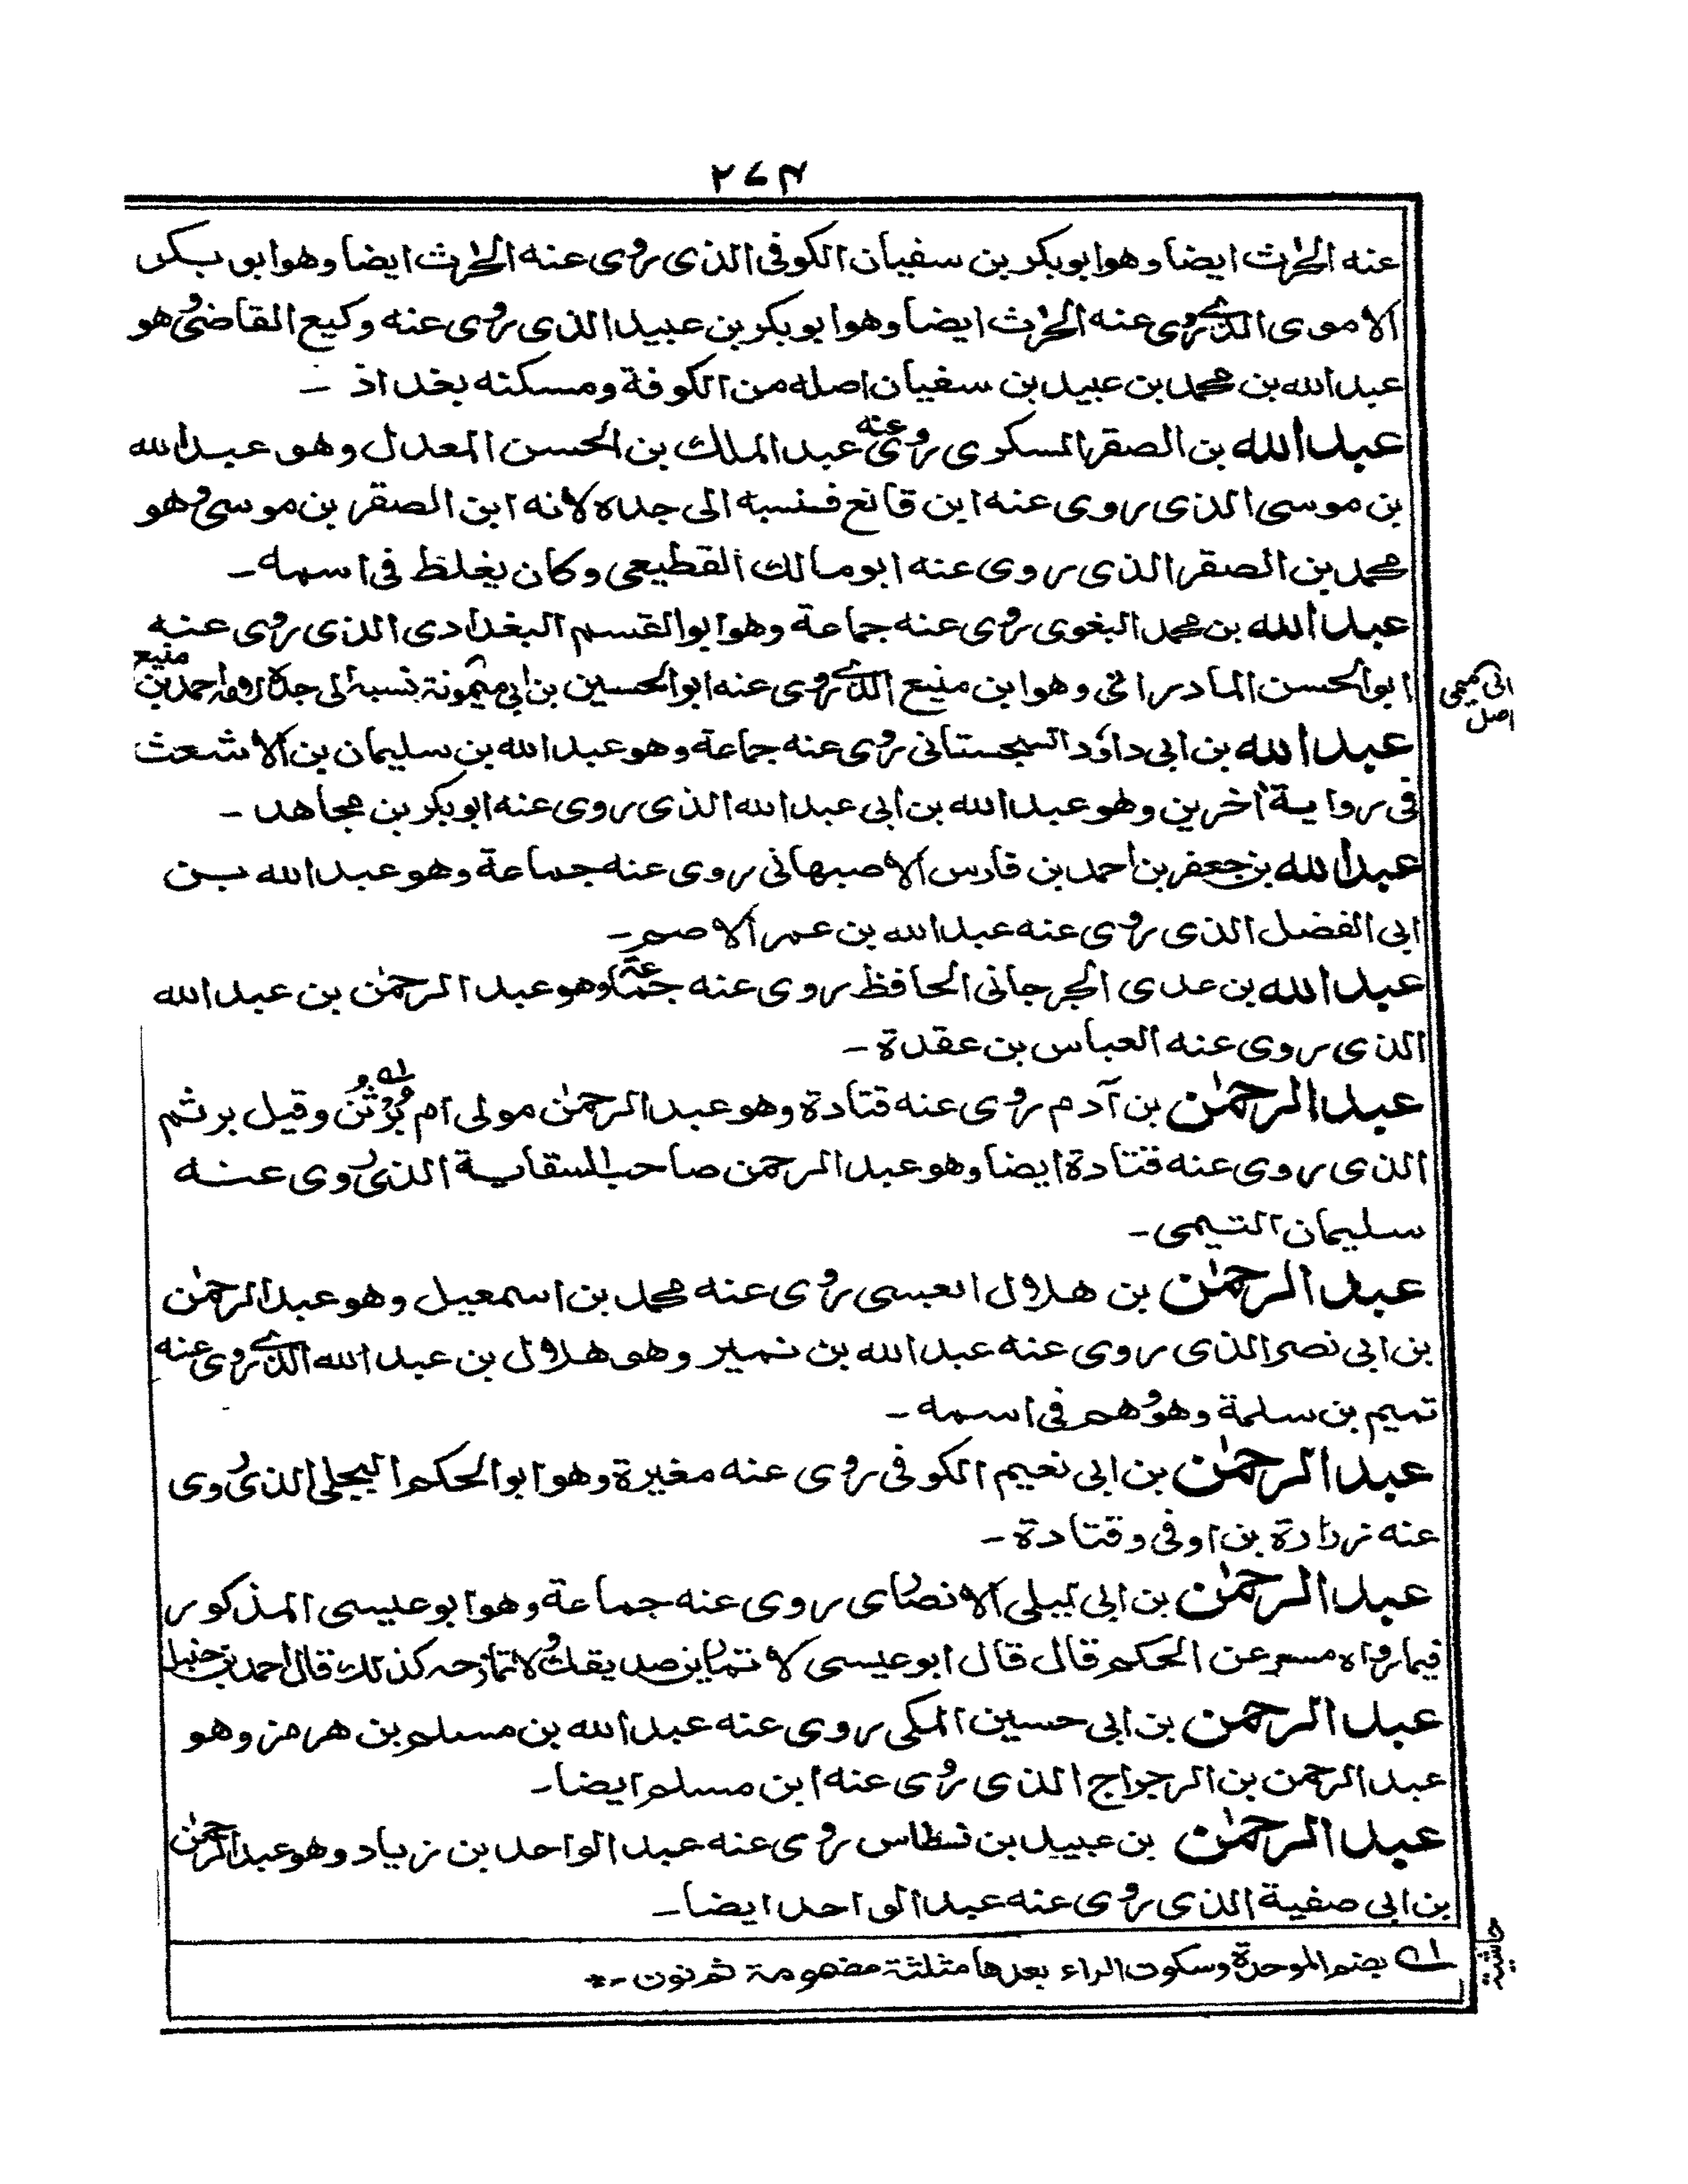 ٢٧٤
عنه الحٰرث ايضا وهو ابو بكر بن سفيان الكوفى الذى روى عنه الحٰرث ايضا وهو ابو بكر
الاموى الذى روى عنه الحٰرث ايضا وهو ابو بكر بن عبيد الذى روى عنه وكيع القاضى وهو
عبد الله بن محمد بن عبيد بن سفيان اصله من الكوفة ومسكنه بغداذ ـ
عبد الله بن الصقر السكرى روى عنه عبد الملك بن الحسن المعدل وهو عبد الله
بن موسى الذى روى عنه ابن قانع فنسبه الى جده لانه ابن الصقر بن موسى وهو
محمد بن الصقر الذى روى عنه ابو مالك القطيعى وكان يغلظ فى اسمه ـ
عبد الله بن محمد البغوى روى عنه جماعة وهو ابو القسم البغدادى الذى روى عنه
ابو الحسن المادرائى وهو ابن منيع الذى روى عنه ابو الحسين بن ابى ميمونة نسبة الى جده لامه احمد بن منيع
عبد الله بن ابى داؤد السجستانى روى عنه جماعة وهو عبد الله بن سليمان بن الاشعث
فى رواية اٰخرين وهو عبد الله بن ابى عبد الله الذى روى عنه ابو بكر بن مجاهد ـ
عبد الله بن جعفر بن احمد بن فارس الاصبهانى روى عنه جماعة وهو عبد الله بن
ابى الفضل الذى روى عنه عبد الله بن عمر الاصم ـ
عبد الله بن عدى الجرجانى الحافظ روى عنه جماعة وهو عبد الرحمٰن بن عبد الله
الذى روى عنه العباس بن عقدة ـ
عبد الرحمٰن بن آدم روى عنه قتادة وهو عبد الرحمٰن مولى ام بُرْثُن ؎١ وقيل برثم
الذى روى عنه قتادة ايضا وهو عبد الرحمن صاحب السقاية الذى روى عنه
سليمان التيمى ـ
عبد الرحمٰن بن هلال العبسى روى عنه محمد بن اسمعيل وهو عبد الرحمٰن
بن ابى نصر الذى روى عنه عبد الله بن نمير وهو هلال بن عبد الله الذى روى عنه
تميم بن سلمة وهو وهم فى اسمه ـ
عبد الرحمٰن بن ابى نعيم الكوفى روى عنه مغيرة وهو ابو الحكم البجلى الذى روى
عنه زرارة بن اوفى وقتادة ـ
عبد الرحمٰن بن ابى ليلى الانصارى روى عنه جماعة وهو ابو عيسى المذكور
فيما رواه مسعر عن الحكم قال قال ابو عيسى لا تمارين صديقك ولا تمازحه كذلك قال احمد بن حنبل
عبد الرحمٰن بن ابى حسين المكى روى عنه عبد الله بن مسلم بن هرمز وهو
عبد الرحمن بن الرجراج الذى روى عنه ابن مسلم ايضا ـ
عبد الرحمٰن بن عبيد بن نسطاس روى عنه عبد الواحد بن زياد وهو عبد الرحمٰن
بن ابى صفية الذى روى عنه عبد الواحد ايضا ـ
؎١ بضم الموحدة وسكون الراء بعدها مثلثة مضمومة ثم نون ـ *
حاشية